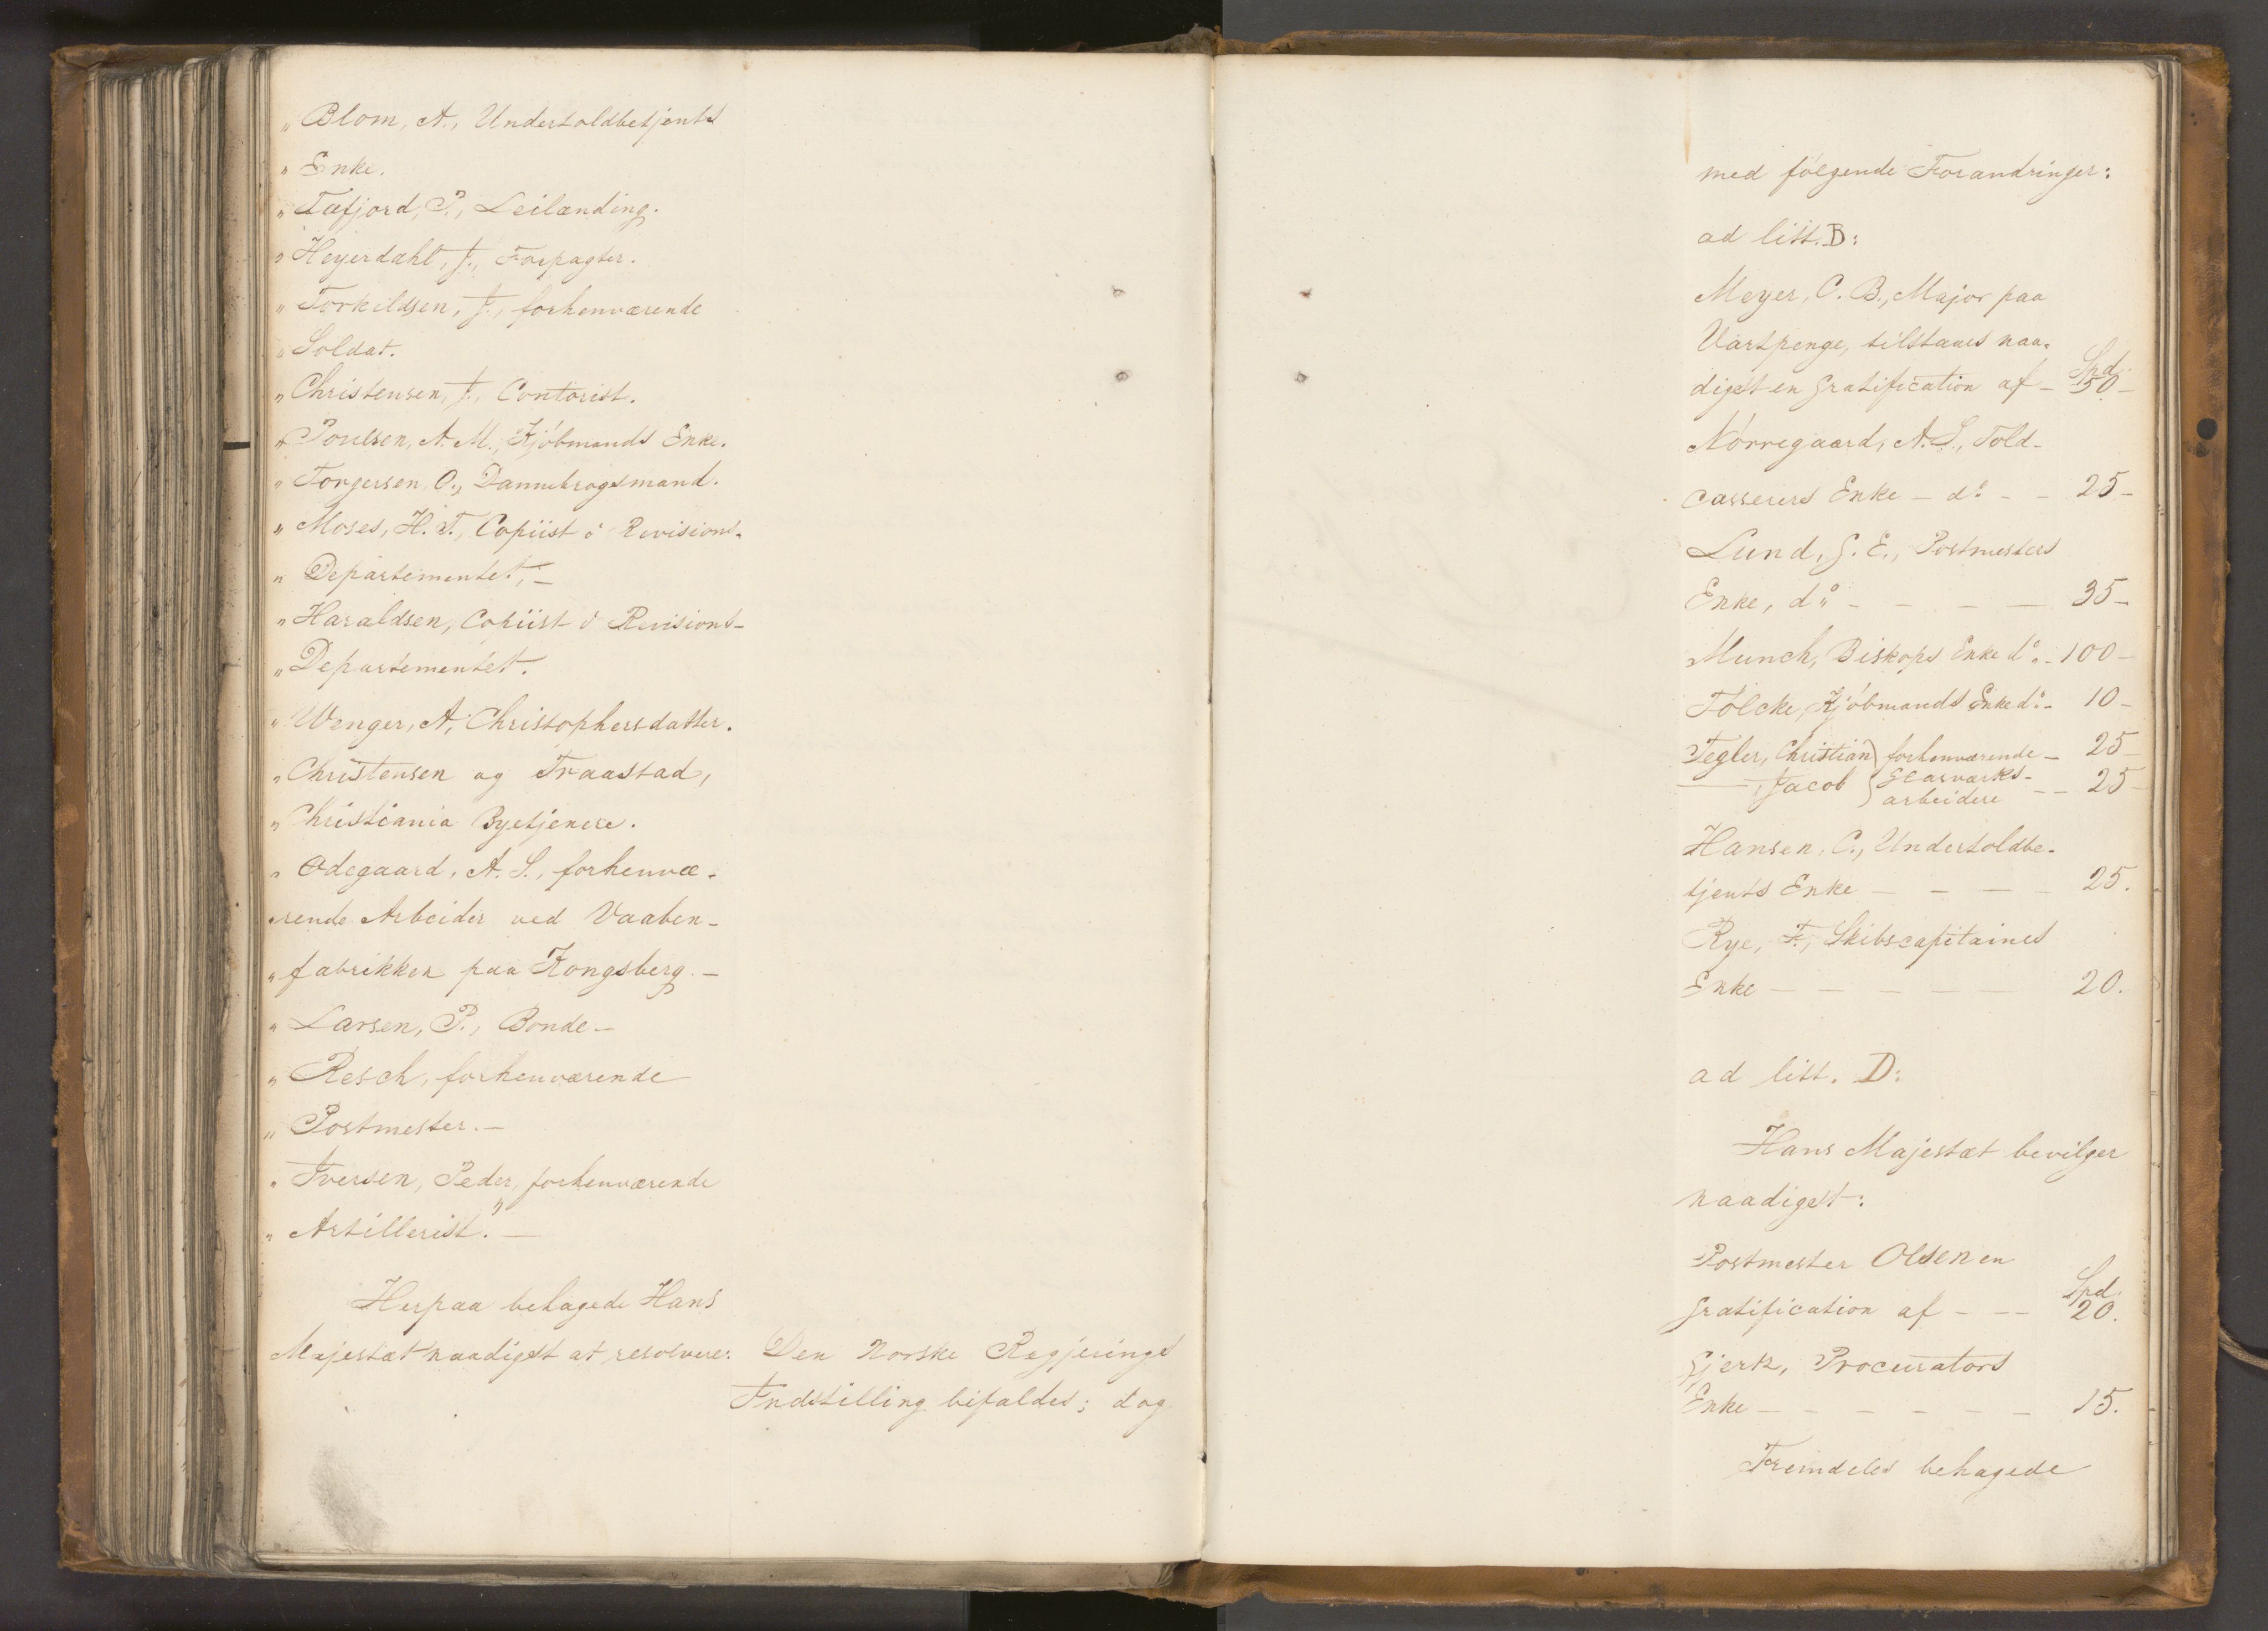 „ Blom, A., Undertoldbetjents
„ Enke.
„ Tafjord, P., Leilænding.
„ Heyerdahl, J., Forpagter.
„ Torkildsen, J., forhenværende
„ Soldat.
„ Christensen, J., Contorist.
„ Poulsen, A. M., Kjöbmands Enke.
„ Torgersen, O., Dannebrogsmand.
„ Moses, H. T., Copiist i Revisions-
„ Departementet, –
„ Haraldsen, Copiist i Revisions-
„ Departementet.
„ Wenger, A, Christophersdatter.
„ Christensen og Traastad,
„ Christiania Byetjenere.
„ Odegaard, A. S., forhenvæ-
„ rende Arbeider ved Vaaben-
„ fabrikken paa Kongsberg. –
„ Larsen, P., Bonde –
„ Resch, forhenværende
„ Postmester. –
„ Iversen, Peder, forhenværende
„ Artillerist.” –
Herpaa behagede Hans
Majestæt naadigst at resolvere:
Den norske Regjerings
Indstilling bifaldes; dog
med følgende Forandringer:
ad litt. B:
Meyer, C. B., Major paa
Vartpenge, tilstaaes naa-
digst en Gratification af – Spd. 50 –
Nörregaard, A. S., Told-
casserers Enke – do – – 25 –
Lund, G. E., Postmesters
Enke, do – – – – 35 –
Munch, Biskops Enke do – 100 –
Fölcke, Kjöbmands Enke do – 10 –
Tegler, Christian } forhenværende – 25 –
–––, Jacob } Glasværks- arbeidere – – 25 –
Hansen, C., Undertoldbe-
tjents Enke – – – – 25.
Rye, F., Skibscapitaines
Enke – – – – – 20.
ad litt. D:
Hans Majestæt bevilger
naadigst:
Postmester Olsen en
Gratification af – – – Spd. 20.
Gjerk, Procurators
Enke – – – – – – 15.
Fremdeles behagede